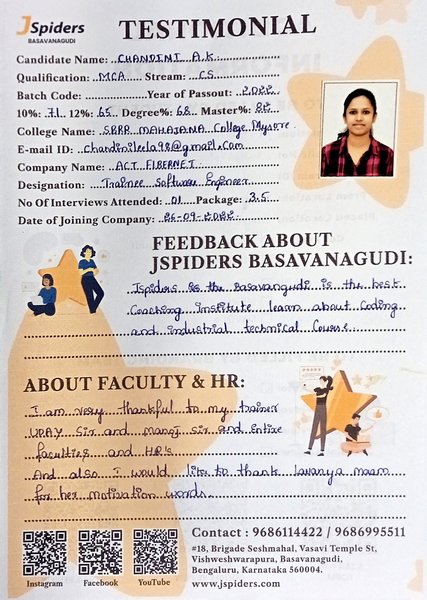 JSpiders
BASAVANAGUDI
TESTIMONIAL
Candidate Name: CHANDINI A.K.
Qualification: MCA Stream: CS
Batch Code: Year of Passout: 2022
10%: 71 12%: 65 Degree%: 68 Master%: 82
College Name: SBRR MAHAJANA College Mysore
E-mail ID: chandinileela98@gmail.com
Company Name: ACT FIBERNET
Designation: Trainee Software Engineer
No Of Interviews Attended: 01 Package: 3.5
Date of Joining Company: 26-09-2022
FEEDBACK ABOUT
JSPIDERS BASAVANAGUDI:
Jspiders the Basavangudi is the best
Coaching institute learn about Coding
and industrial technical Course.
ABOUT FACULTY & HR:
I am very thankful to my trainer
UDAY Sir and Manoj sir and Entire
faculties and HR's
And also I would like to thank lavanya maam
for her motivation words.
Instagram Facebook YouTube
Contact : 9686114422 / 9686995511
#18, Brigade Seshmahal, Vasavi Temple St,
Vishweshwarapura, Basavanagudi,
Bengaluru, Karnataka 560004.
www.jspiders.com